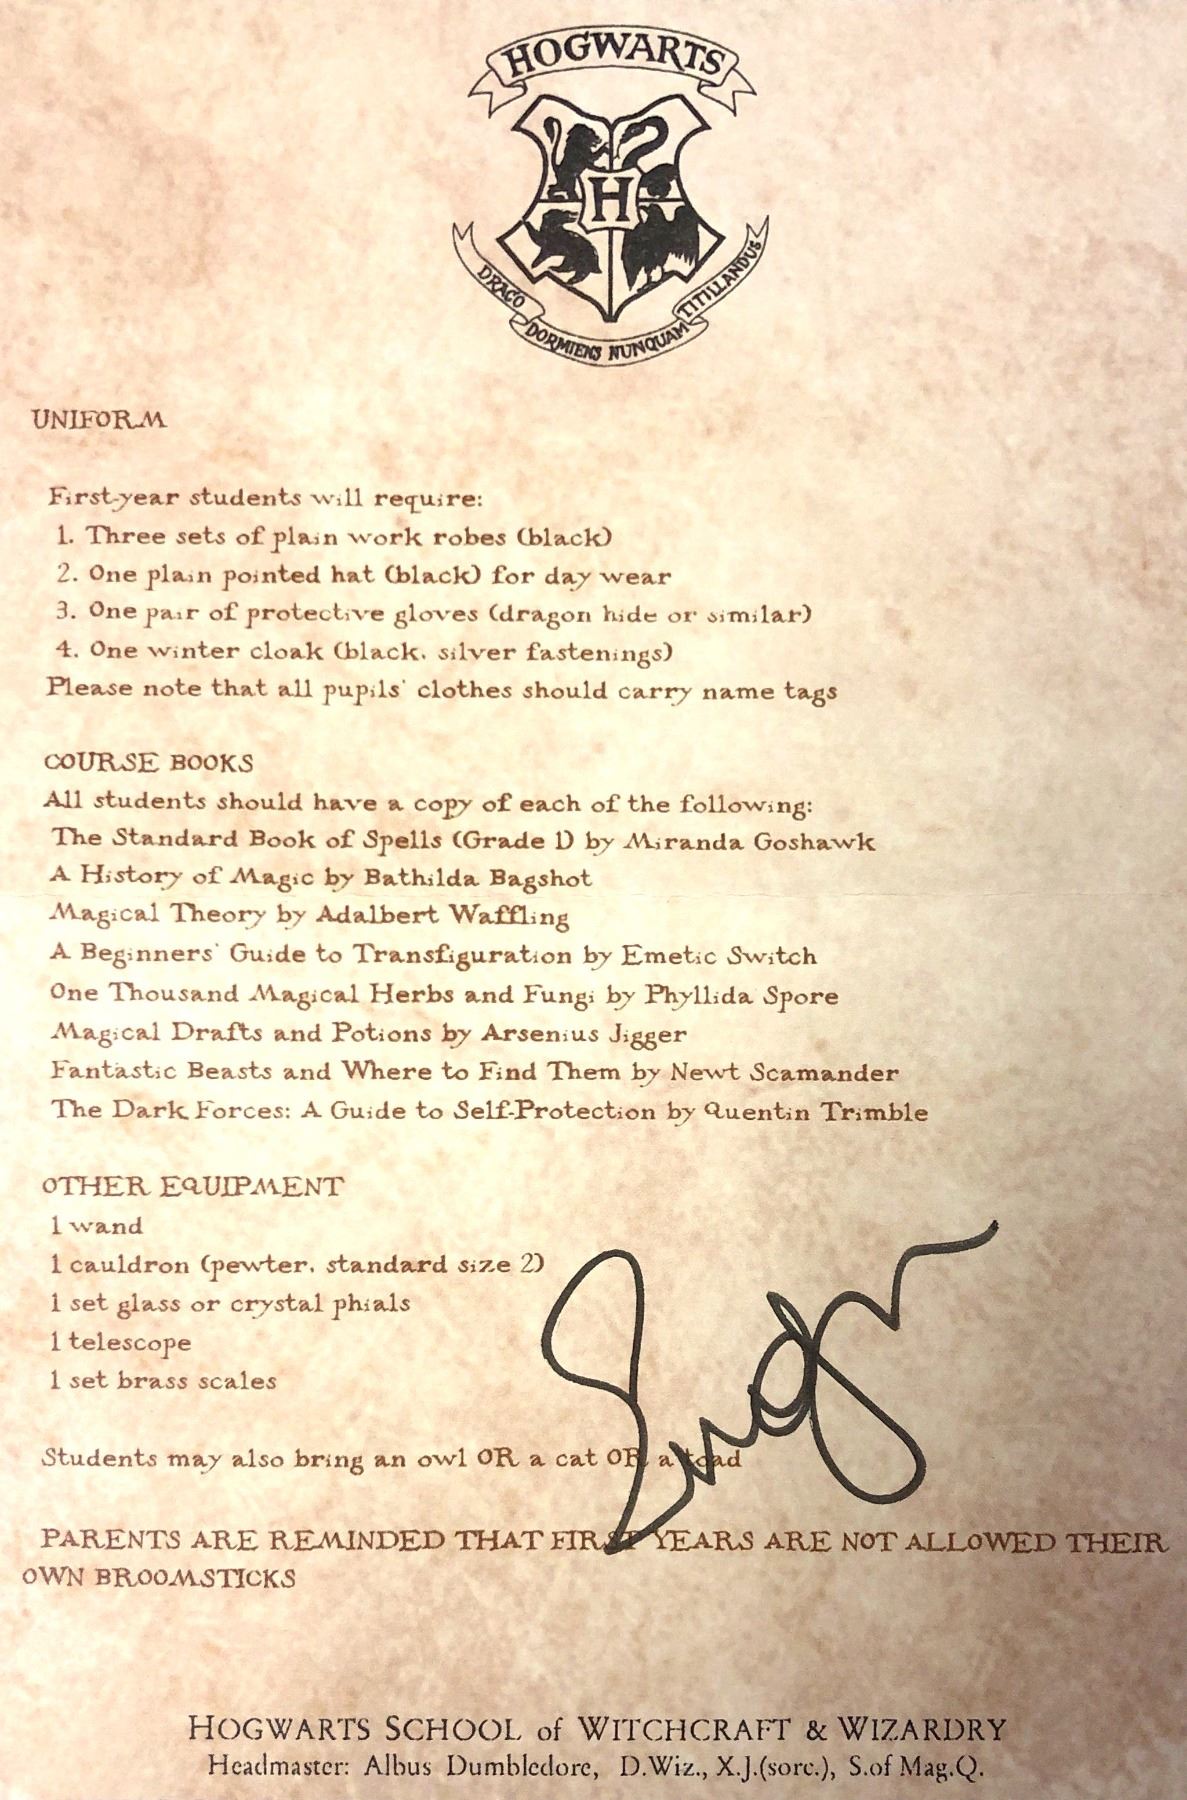 HOGWARTS
H
DRACO DORMIENS NUNQUAM TITILLANDUS
UNIFORM
First-year students will require:
1. Three sets of plain work robes (black)
2. One plain pointed hat (black) for day wear
3. One pair of protective gloves (dragon hide or similar)
4. One winter cloak (black, silver fastenings)
Please note that all pupils' clothes should carry name tags
COURSE BOOKS
All students should have a copy of each of the following:
The Standard Book of Spells (Grade 1) by Miranda Goshawk
A History of Magic by Bathilda Bagshot
Magical Theory by Adalbert Waffling
A Beginners' Guide to Transfiguration by Emetic Switch
One Thousand Magical Herbs and Fungi by Phyllida Spore
Magical Drafts and Potions by Arsenius Jigger
Fantastic Beasts and Where to Find Them by Newt Scamander
The Dark Forces: A Guide to Self-Protection by Quentin Trimble
OTHER EQUIPMENT
1 wand
1 cauldron (pewter, standard size 2)
1 set glass or crystal phials
1 telescope
1 set brass scales
Students may also bring an owl OR a cat OR a toad
PARENTS ARE REMINDED THAT FIRST YEARS ARE NOT ALLOWED THEIR
OWN BROOMSTICKS
HOGWARTS SCHOOL of WITCHCRAFT & WIZARDRY
Headmaster: Albus Dumbledore, D.Wiz., X.J.(sorc.), S.of Mag.Q.